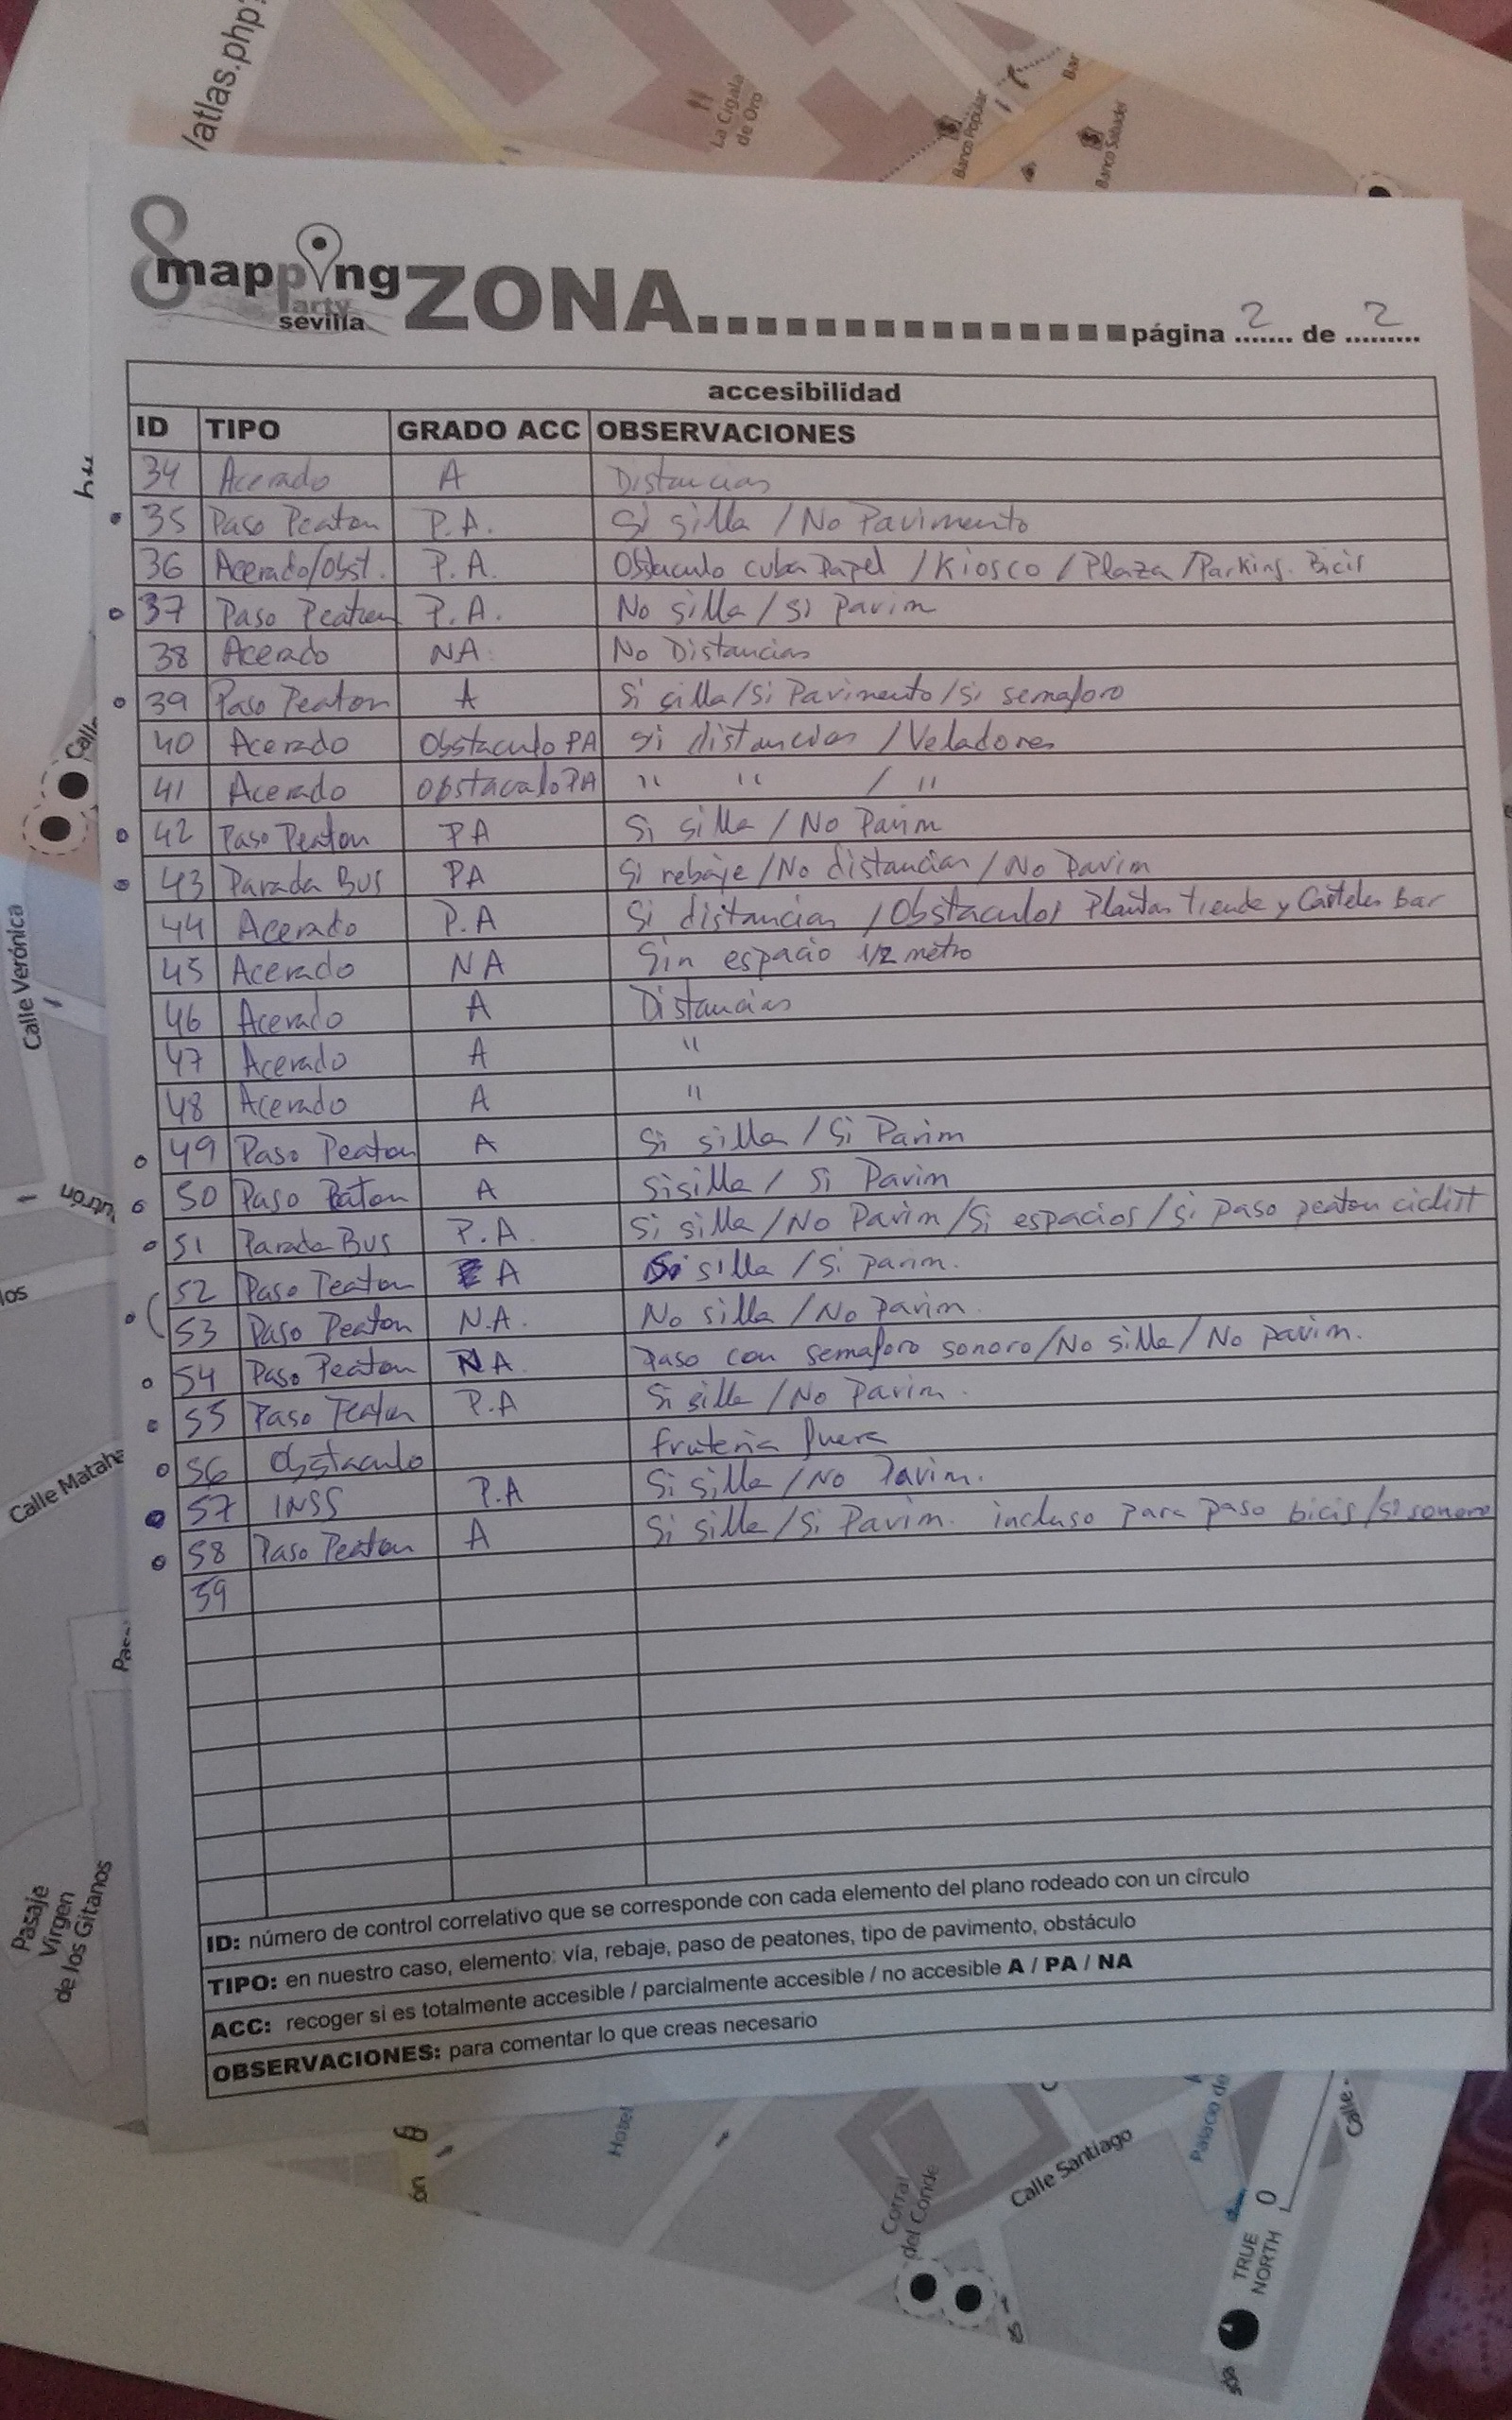 /atlas.php?
La Cigala
de Oro
Banco Popular
Bar
Banco Sabadel
8 mapping
party
sevilla
ZONA............... página 2 de 2
accesibilidad
ID TIPO GRADO ACC OBSERVACIONES
34 Acerado A Distancias
35 Paso Peaton P.A. Si silla / No Pavimento
36 Acerado/Obst. P.A. Obstaculo cuba Papel / Kiosco / Plaza / Parking. Bicis
37 Paso Peaton P.A. No silla / si Pavim
38 Acerado NA No Distancias
39 Paso Peaton A Si silla / Si Pavimento / Si semaforo
40 Acerado Obstaculo PA si distancias / Veladores
41 Acerado Obstaculo PA " " / "
42 Paso Peaton PA Si silla / No Pavim
43 Parada Bus PA Si rebaje / No distancias / No Pavim
44 Acerado P.A Si distancias / Obstaculos Plantas tienda y Carteles Bar
45 Acerado NA Sin espacio 1/2 metro
46 Acerado A Distancias
47 Acerado A "
48 Acerado A "
49 Paso Peaton A Si silla / Si Pavim
50 Paso Peaton A Si silla / Si Pavim
51 Parada Bus P.A. Si silla / No Pavim / Si espacios / si paso peaton ciclist
52 Paso Peaton A Si silla / Si pavim.
53 Paso Peaton N.A. No silla / No Pavim.
54 Paso Peaton NA. Paso con semaforo sonoro / No silla / No pavim.
55 Paso Peaton P.A Si silla / No Pavim.
56 Obstaculo fruteria fuera
57 INSS P.A Si silla / No Pavim.
58 Paso Peaton A Si silla / Si Pavim. incluso para paso bicis / si sonoro
59
ID: número de control correlativo que se corresponde con cada elemento del plano rodeado con un círculo
TIPO: en nuestro caso, elemento: vía, rebaje, paso de peatones, tipo de pavimento, obstáculo
ACC: recoger si es totalmente accesible / parcialmente accesible / no accesible A / PA / NA
OBSERVACIONES: para comentar lo que creas necesario
Calle
Calle Verónica
los
Calle Mataha
Pasaje
Virgen
de los Gitanos
Hotel
Corral
del Conde
Calle Santiago
Palacio de
Calle
TRUE
NORTH
0